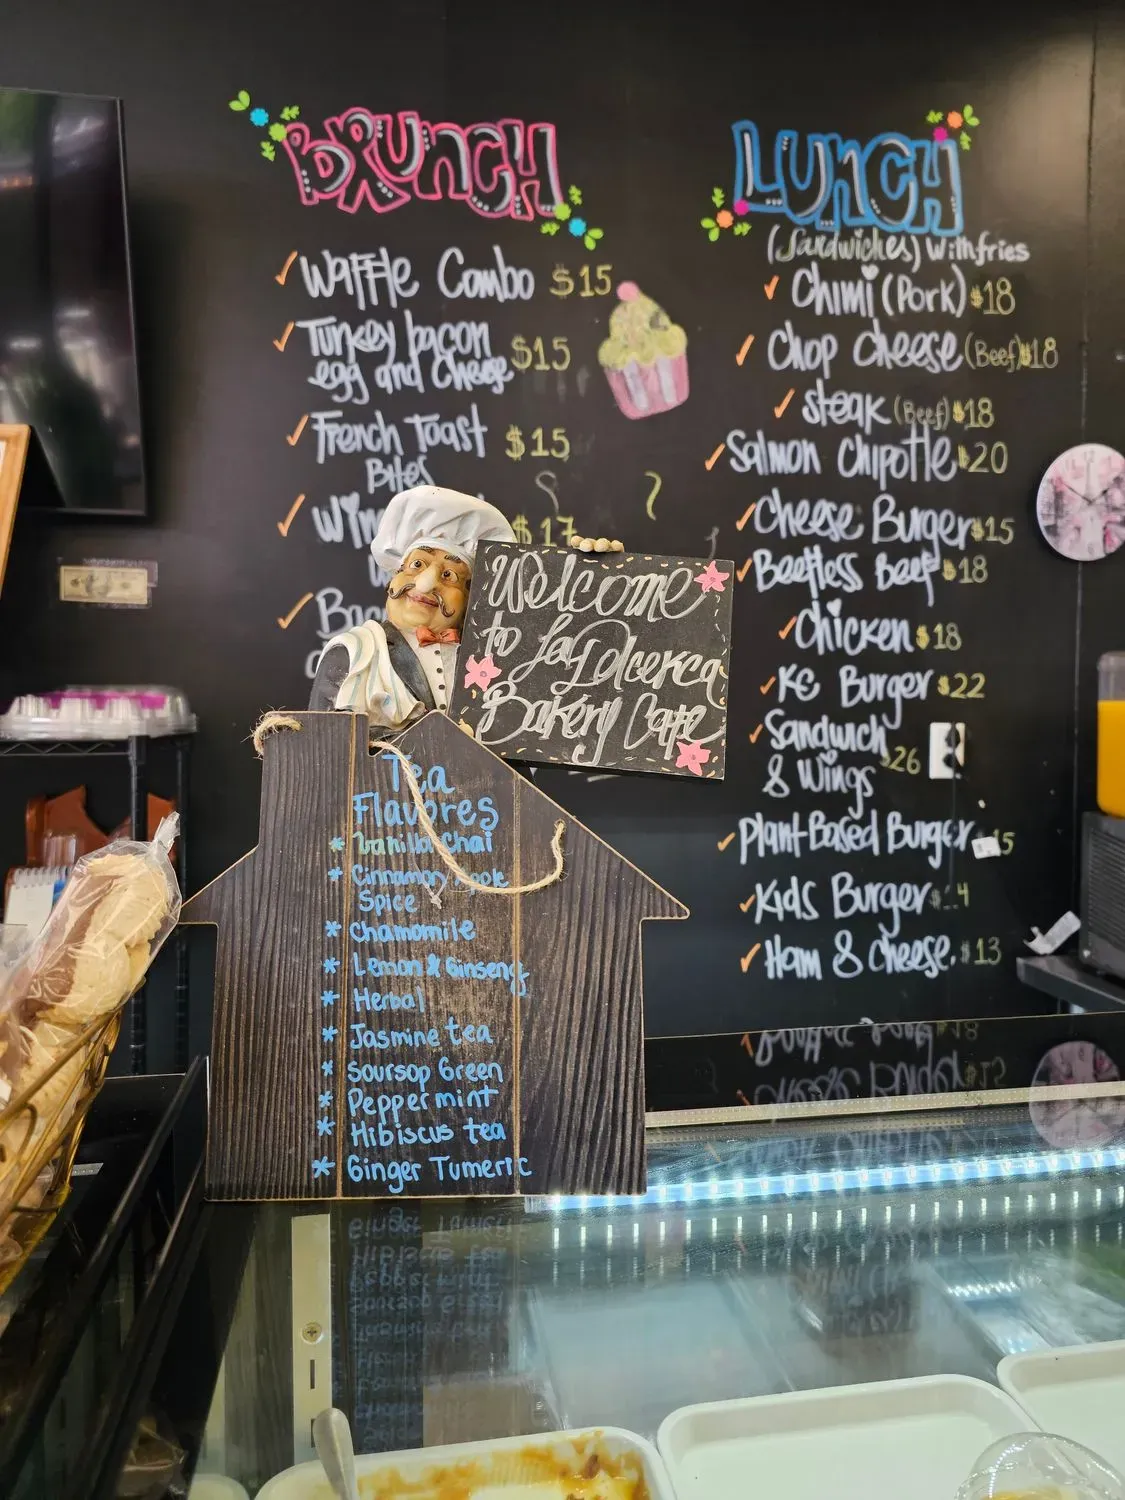 BRUNCH
Waffle Combo $15
Turkey bacon
egg and Cheese $15
French Toast $15
Bites
$17
LUNCH
(Sandwiches) With fries
Chimi (Pork) $18
Chop cheese (Beef) $18
steak (Beef) $18
Salmon Chipotle $20
Cheese Burger $15
Beefless Beef $18
Chicken $18
KC Burger $22
Sandwich
& Wings $26
Plant Based Burger
Kids Burger
Ham & cheese. $13
Welcome
to La
Bakery Cafe
Tea
Flavores
* Vanilla Chai
* Cinnamon Apple
Spice
* Chamomile
* Lemon & Ginseng
* Herbal
* Jasmine tea
* Soursop Green
* Peppermint
* Hibiscus tea
* Ginger Tumeric